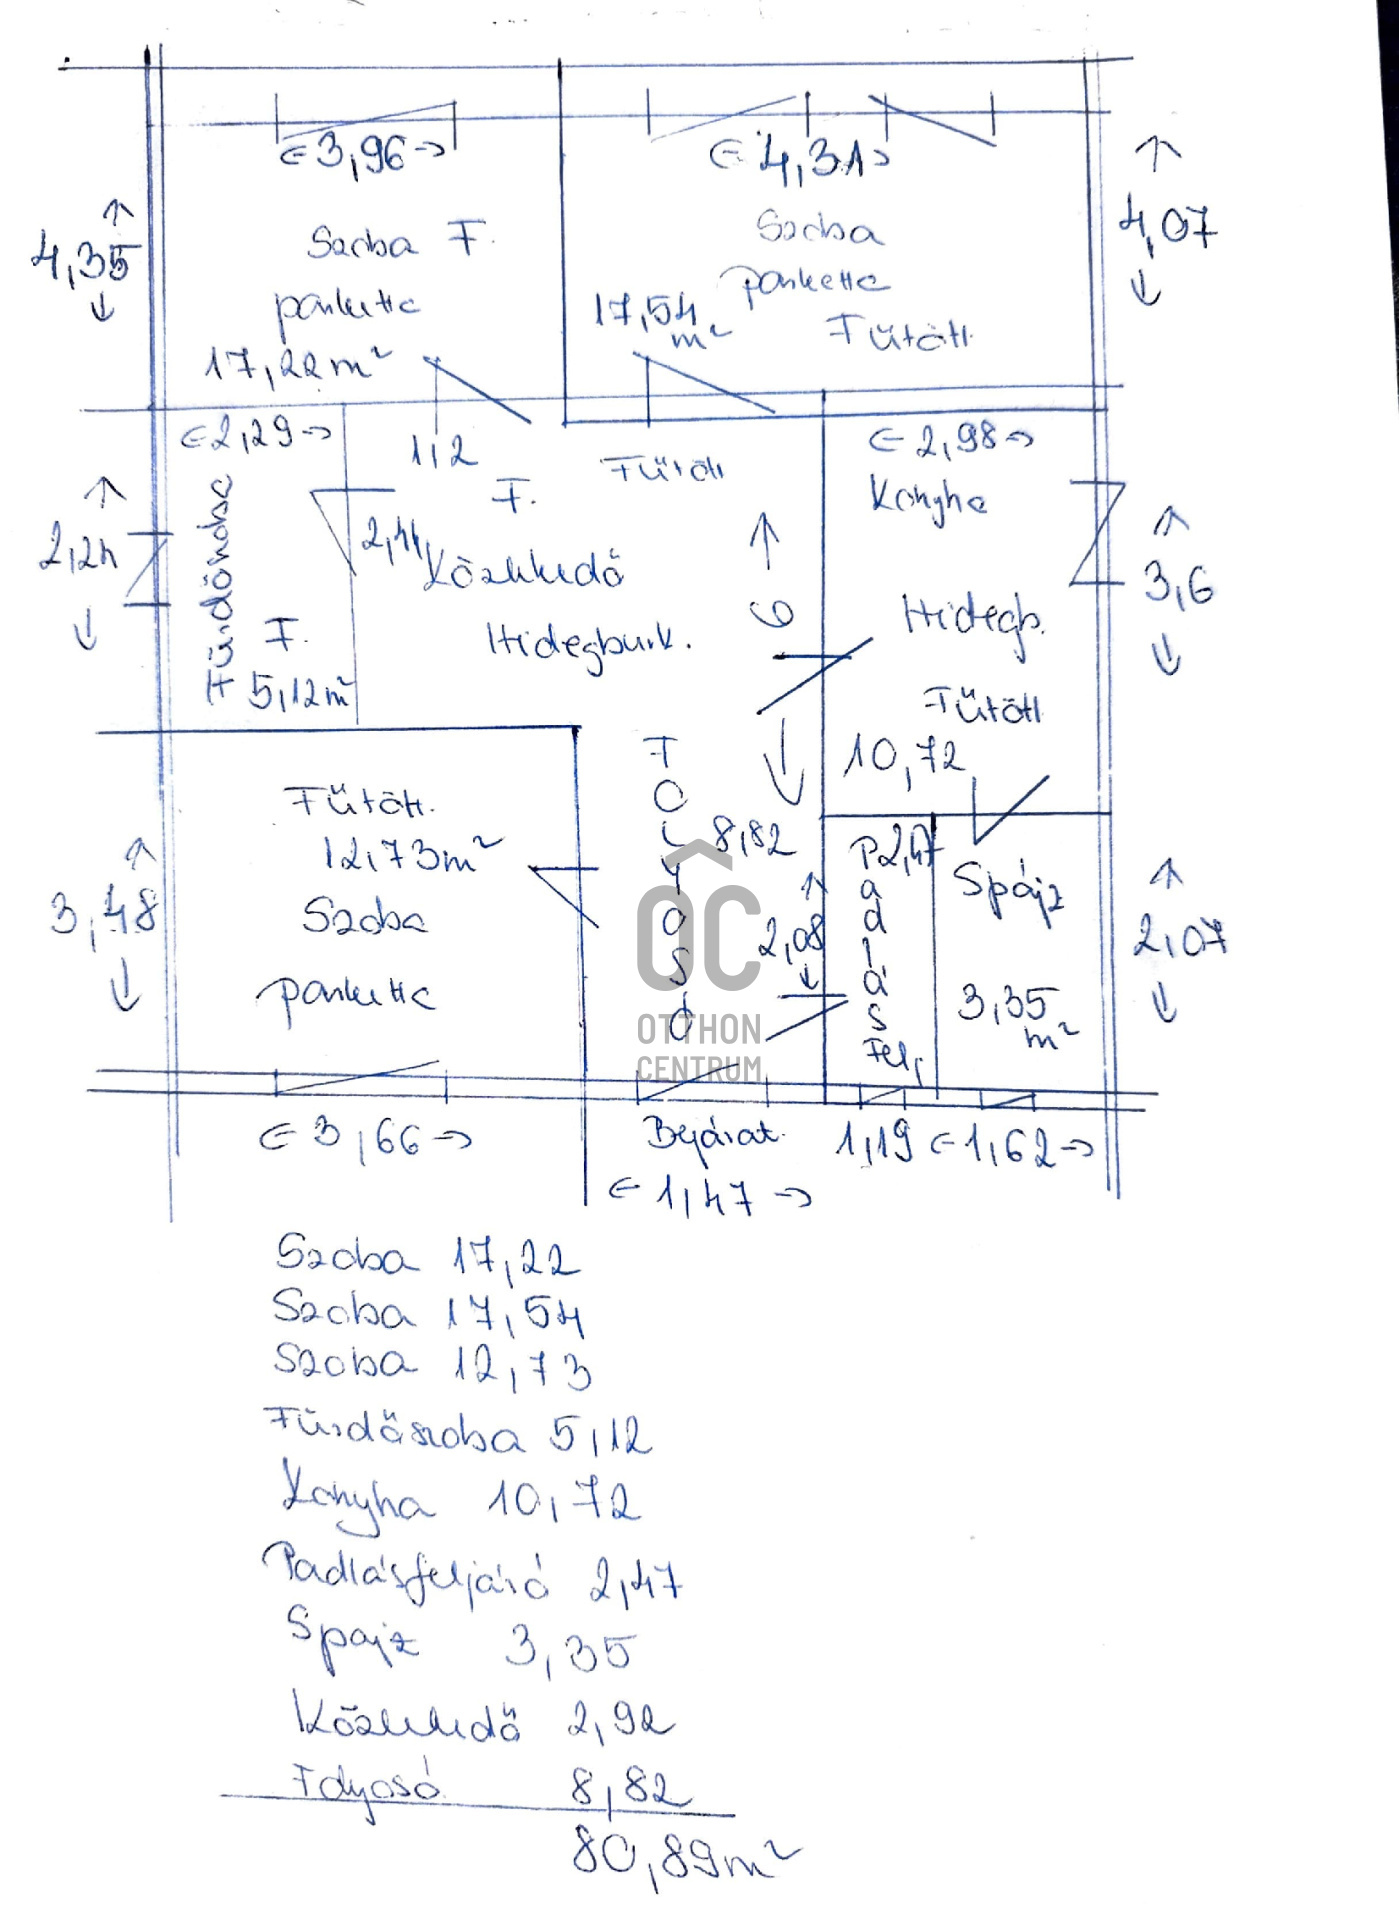 3,96
4,31
4,35
Szoba F.
parketta
17,22 m²
Szoba
parketta
17,54
m²
Fűtött
4,07
2,29
1,2
Fűtött
2,98
Konyha
2,24
Fürdőszoba
F.
5,12 m²
F.
2,44
Közlekedő
Hidegburk.
6
3,6
Hidegb.
Fűtött
10,72
Fűtött
12,73 m²
Szoba
parketta
3,48
Folyosó
8,82
2,08
2,47
Padlásfelj
Spájz
3,35
m²
2,07
OC
OTTHON
CENTRUM
3,66
Bejárat
1,47
1,19
1,62
Szoba 17,22
Szoba 17,54
Szoba 12,73
Fürdőszoba 5,12
Konyha 10,72
Padlásfeljáró 2,47
Spajz 3,35
Közlekedő 2,92
Folyosó 8,82
80,89 m²